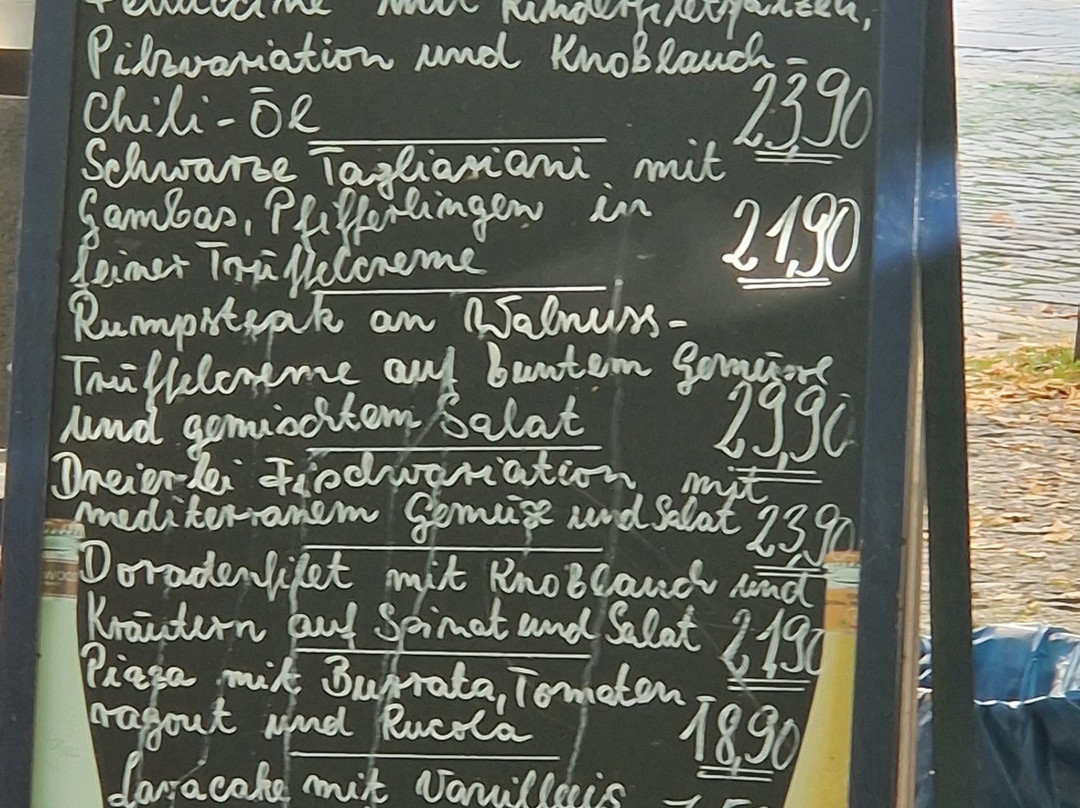 Fettuccine mit Rinderfiletspitzen,
Pilzvariation und Knoblauch-
Chili-Öl 23,90
Schwarze Tagliariani mit
Gambas, Pfifferlingen in
feiner Trüffelcreme 21,90
Rumpsteak an Walnuss-
Trüffelcreme auf buntem Gemüse
und gemischtem Salat 29,90
Dreierlei Fischvariation mit
mediterranem Gemüse und Salat 23,90
Doradenfilet mit Knoblauch und
Kräutern auf Spinat und Salat 21,90
Pizza mit Burrata, Tomaten-
ragout und Rucola 18,90
Lavacake mit Vanilleeis